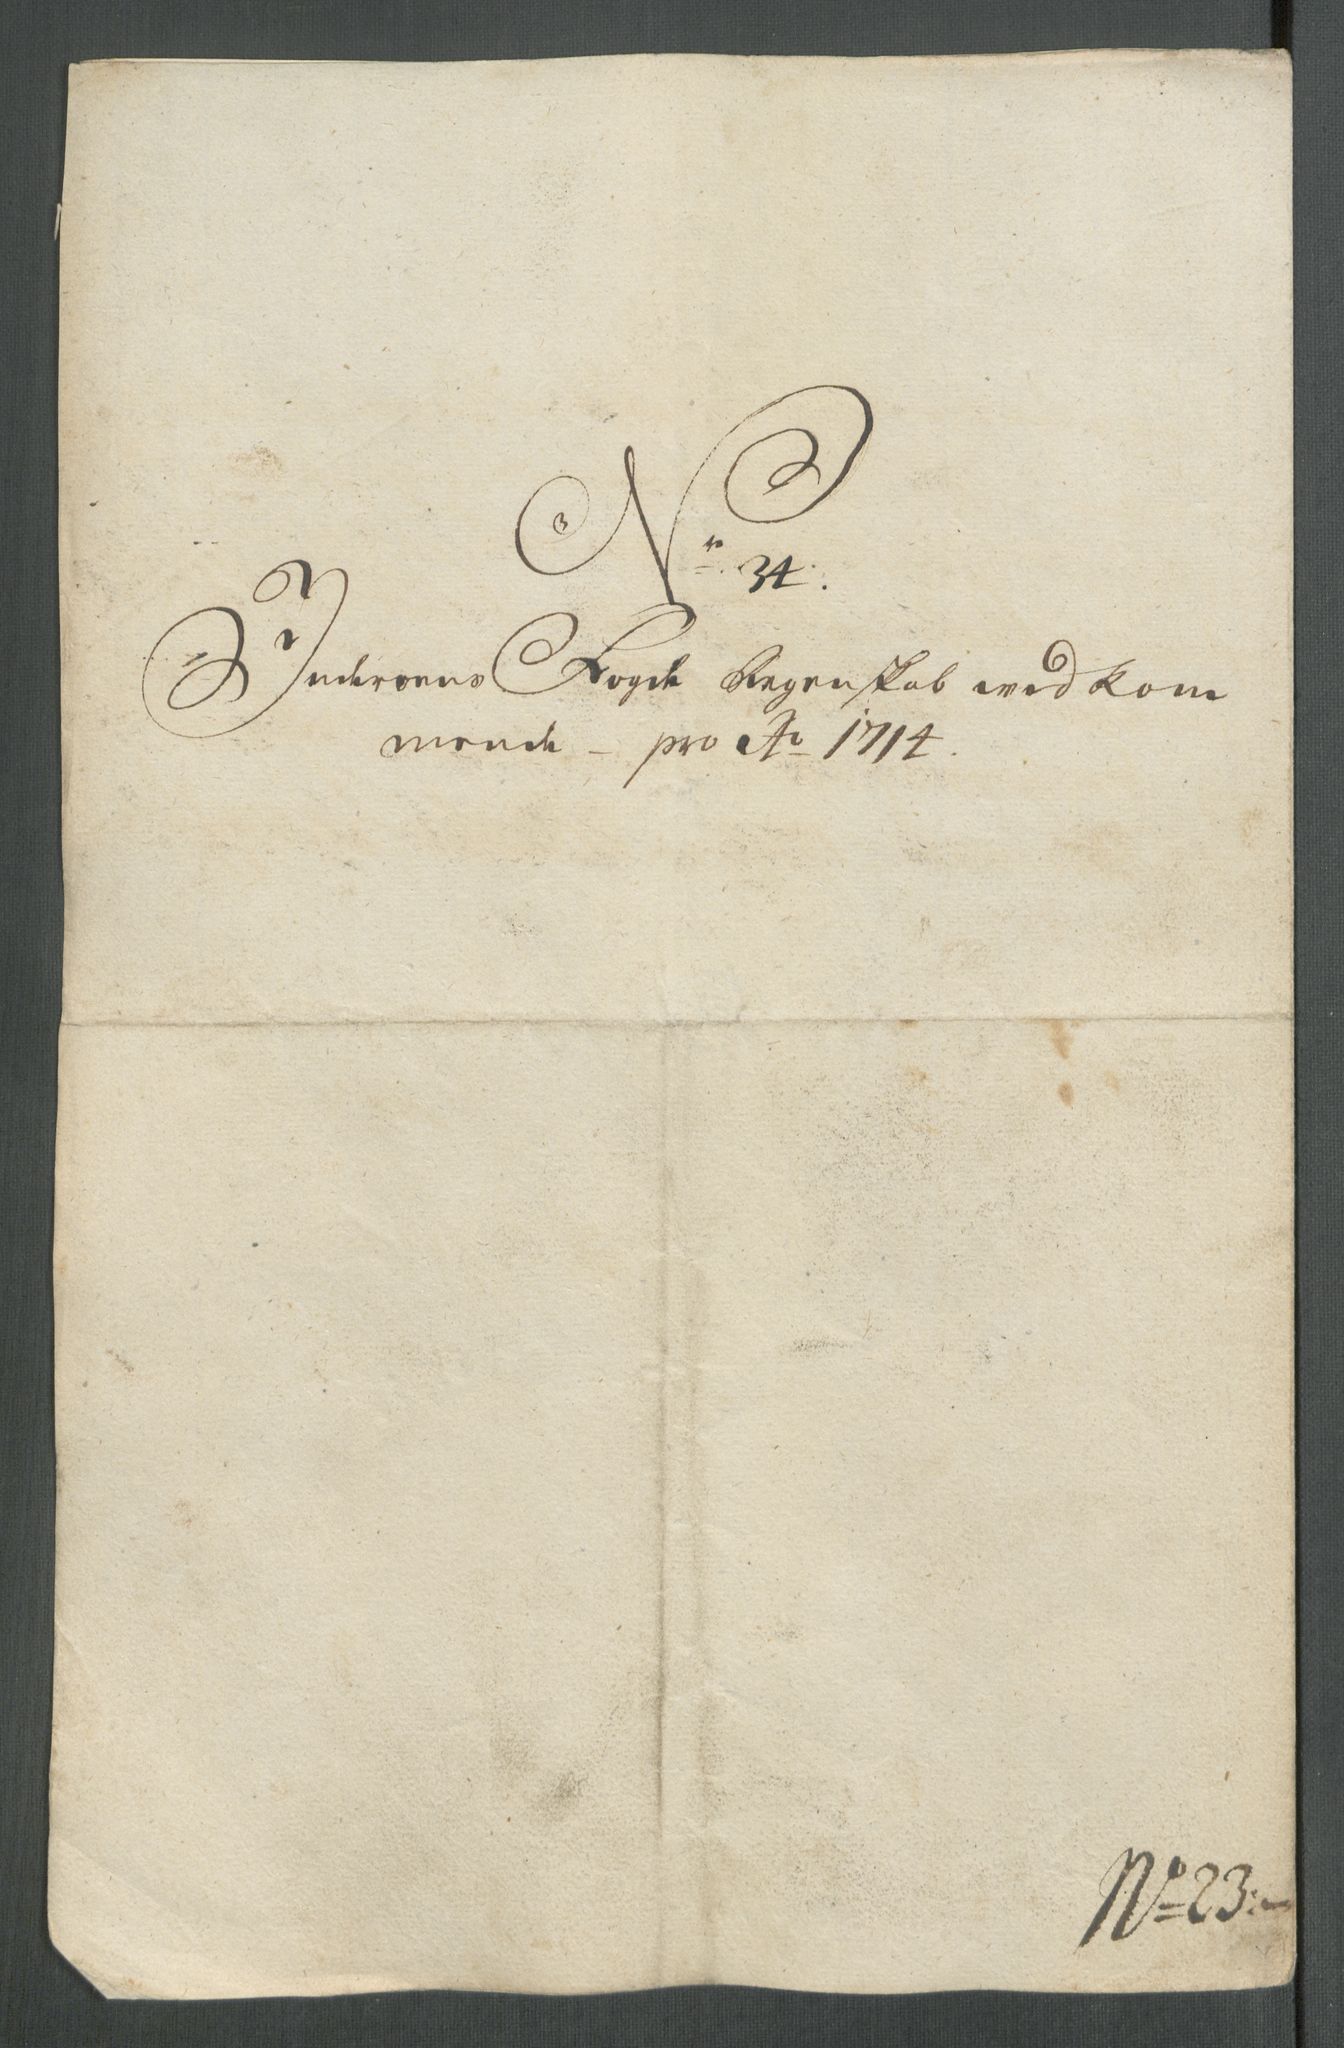 Nr. 34.
Inderøens Fogde Regenskab wedkom
mende - pro Ao 1714.
No 23: